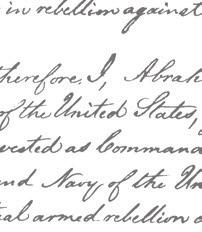 in rebellion against
therefore, I, Abrah
of the United States,
vested as Comman
and Navy of the Un
armed rebellion